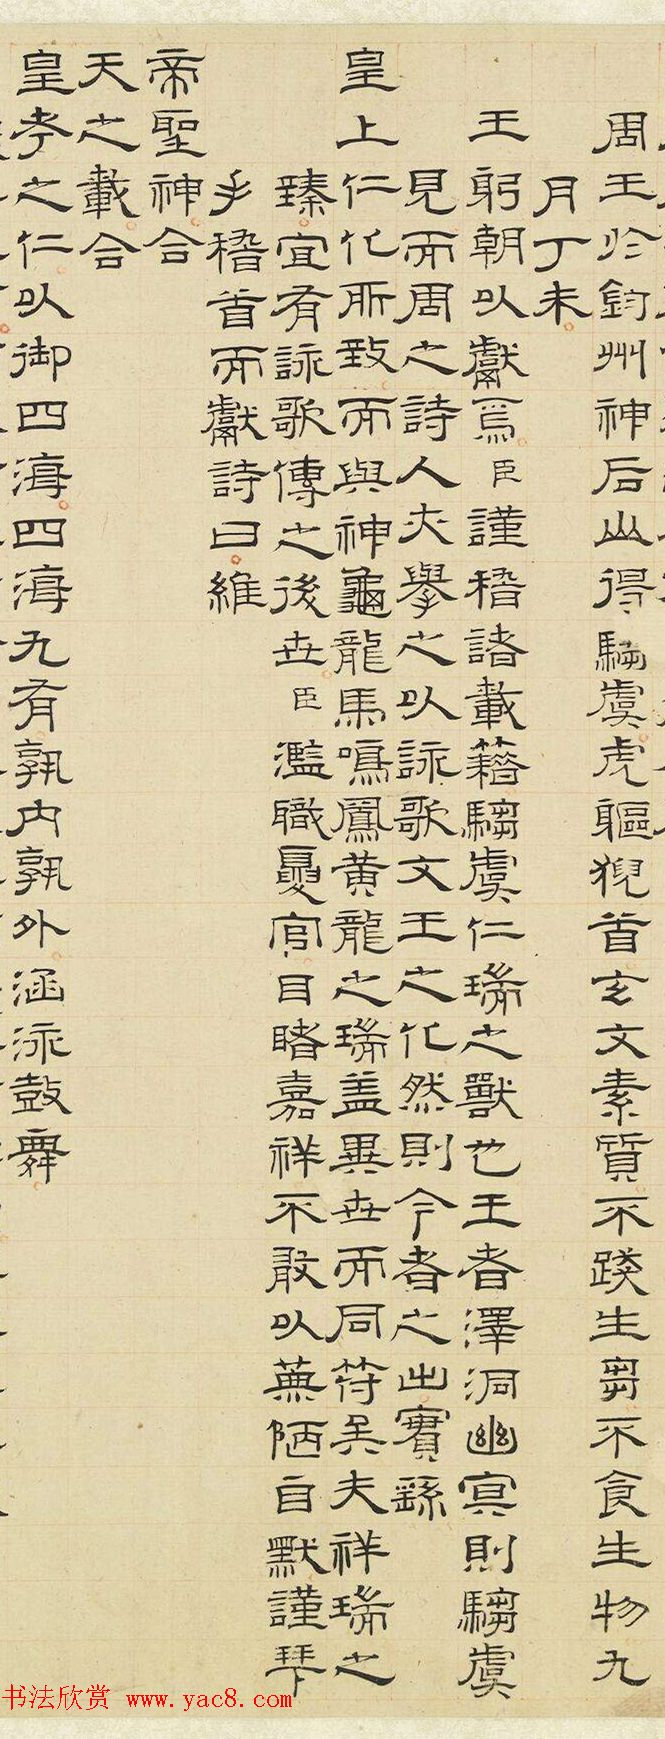 周王於鈞州神后山得騶虞虎軀猊首玄文素質不踐生芻不食生物九
月丁未
王躬朝以獻焉臣謹稽諸載籍騶虞仁瑞之獸也王者澤洞幽冥則騶虞
見而周之詩人舉之以詠歌文王之化然則今者之出實繇
皇上仁化所致而與神龜龍馬鳴鳳黃龍之瑞蓋異世而同符矣夫祥瑞之
臻宜有詠歌傳之後世臣濫職夏官目睹嘉祥不敢以蕪陋自默謹拜
手稽首而獻詩曰維
帝聖神合
天之載合
皇考之仁以御四海四海九有孰內孰外涵泳鼓舞
书法欣赏 www.yac8.com